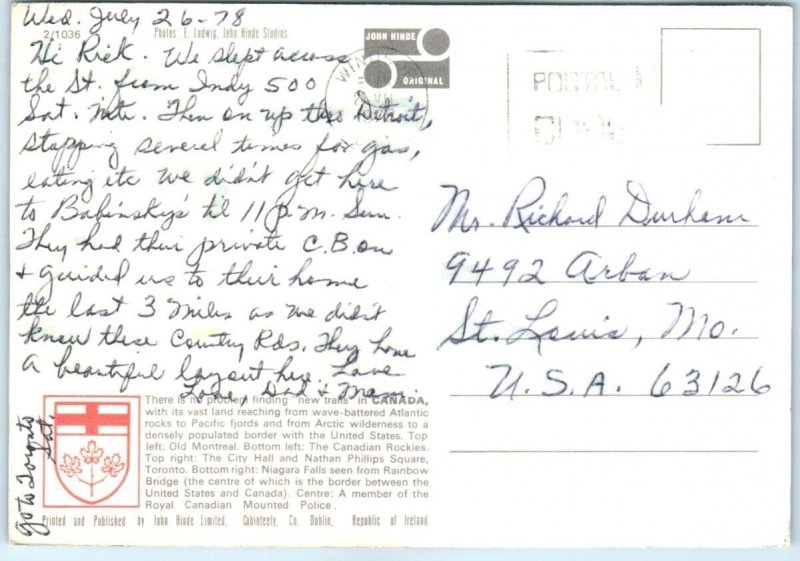 Wed. July 26-78
2/1036
Photos: E. Ludwig, John Hinde Studios.
Hi Rick. We slept across
the St. from Indy 500
Sat. Nite. Then on up thru Detroit,
stopping several times for gas,
eating etc we didn't get here
to Babinsky's til 11 p.m. Sun.
They had their private C.B. on
& guided us to their home
the last 3 miles as we didn't
know these Country Rds. They have
a beautiful layout here. Love
Love, Dad & Mom
go to Toronto
Sat.
JOHN HINDE
ORIGINAL
POSTAL
CODE
Mr. Richard Durham
9492 Arban
St. Louis, Mo.
U.S.A. 63126
There is no problem finding "new trails" in CANADA,
with its vast land reaching from wave-battered Atlantic
rocks to Pacific fjords and from Arctic wilderness to a
densely populated border with the United States. Top
left: Old Montreal. Bottom left: The Canadian Rockies.
Top right: The City Hall and Nathan Phillips Square,
Toronto. Bottom right: Niagara Falls seen from Rainbow
Bridge (the centre of which is the border between the
United States and Canada). Centre: A member of the
Royal Canadian Mounted Police.
Printed and Published by John Hinde Limited, Cabinteely, Co. Dublin, Republic of Ireland.